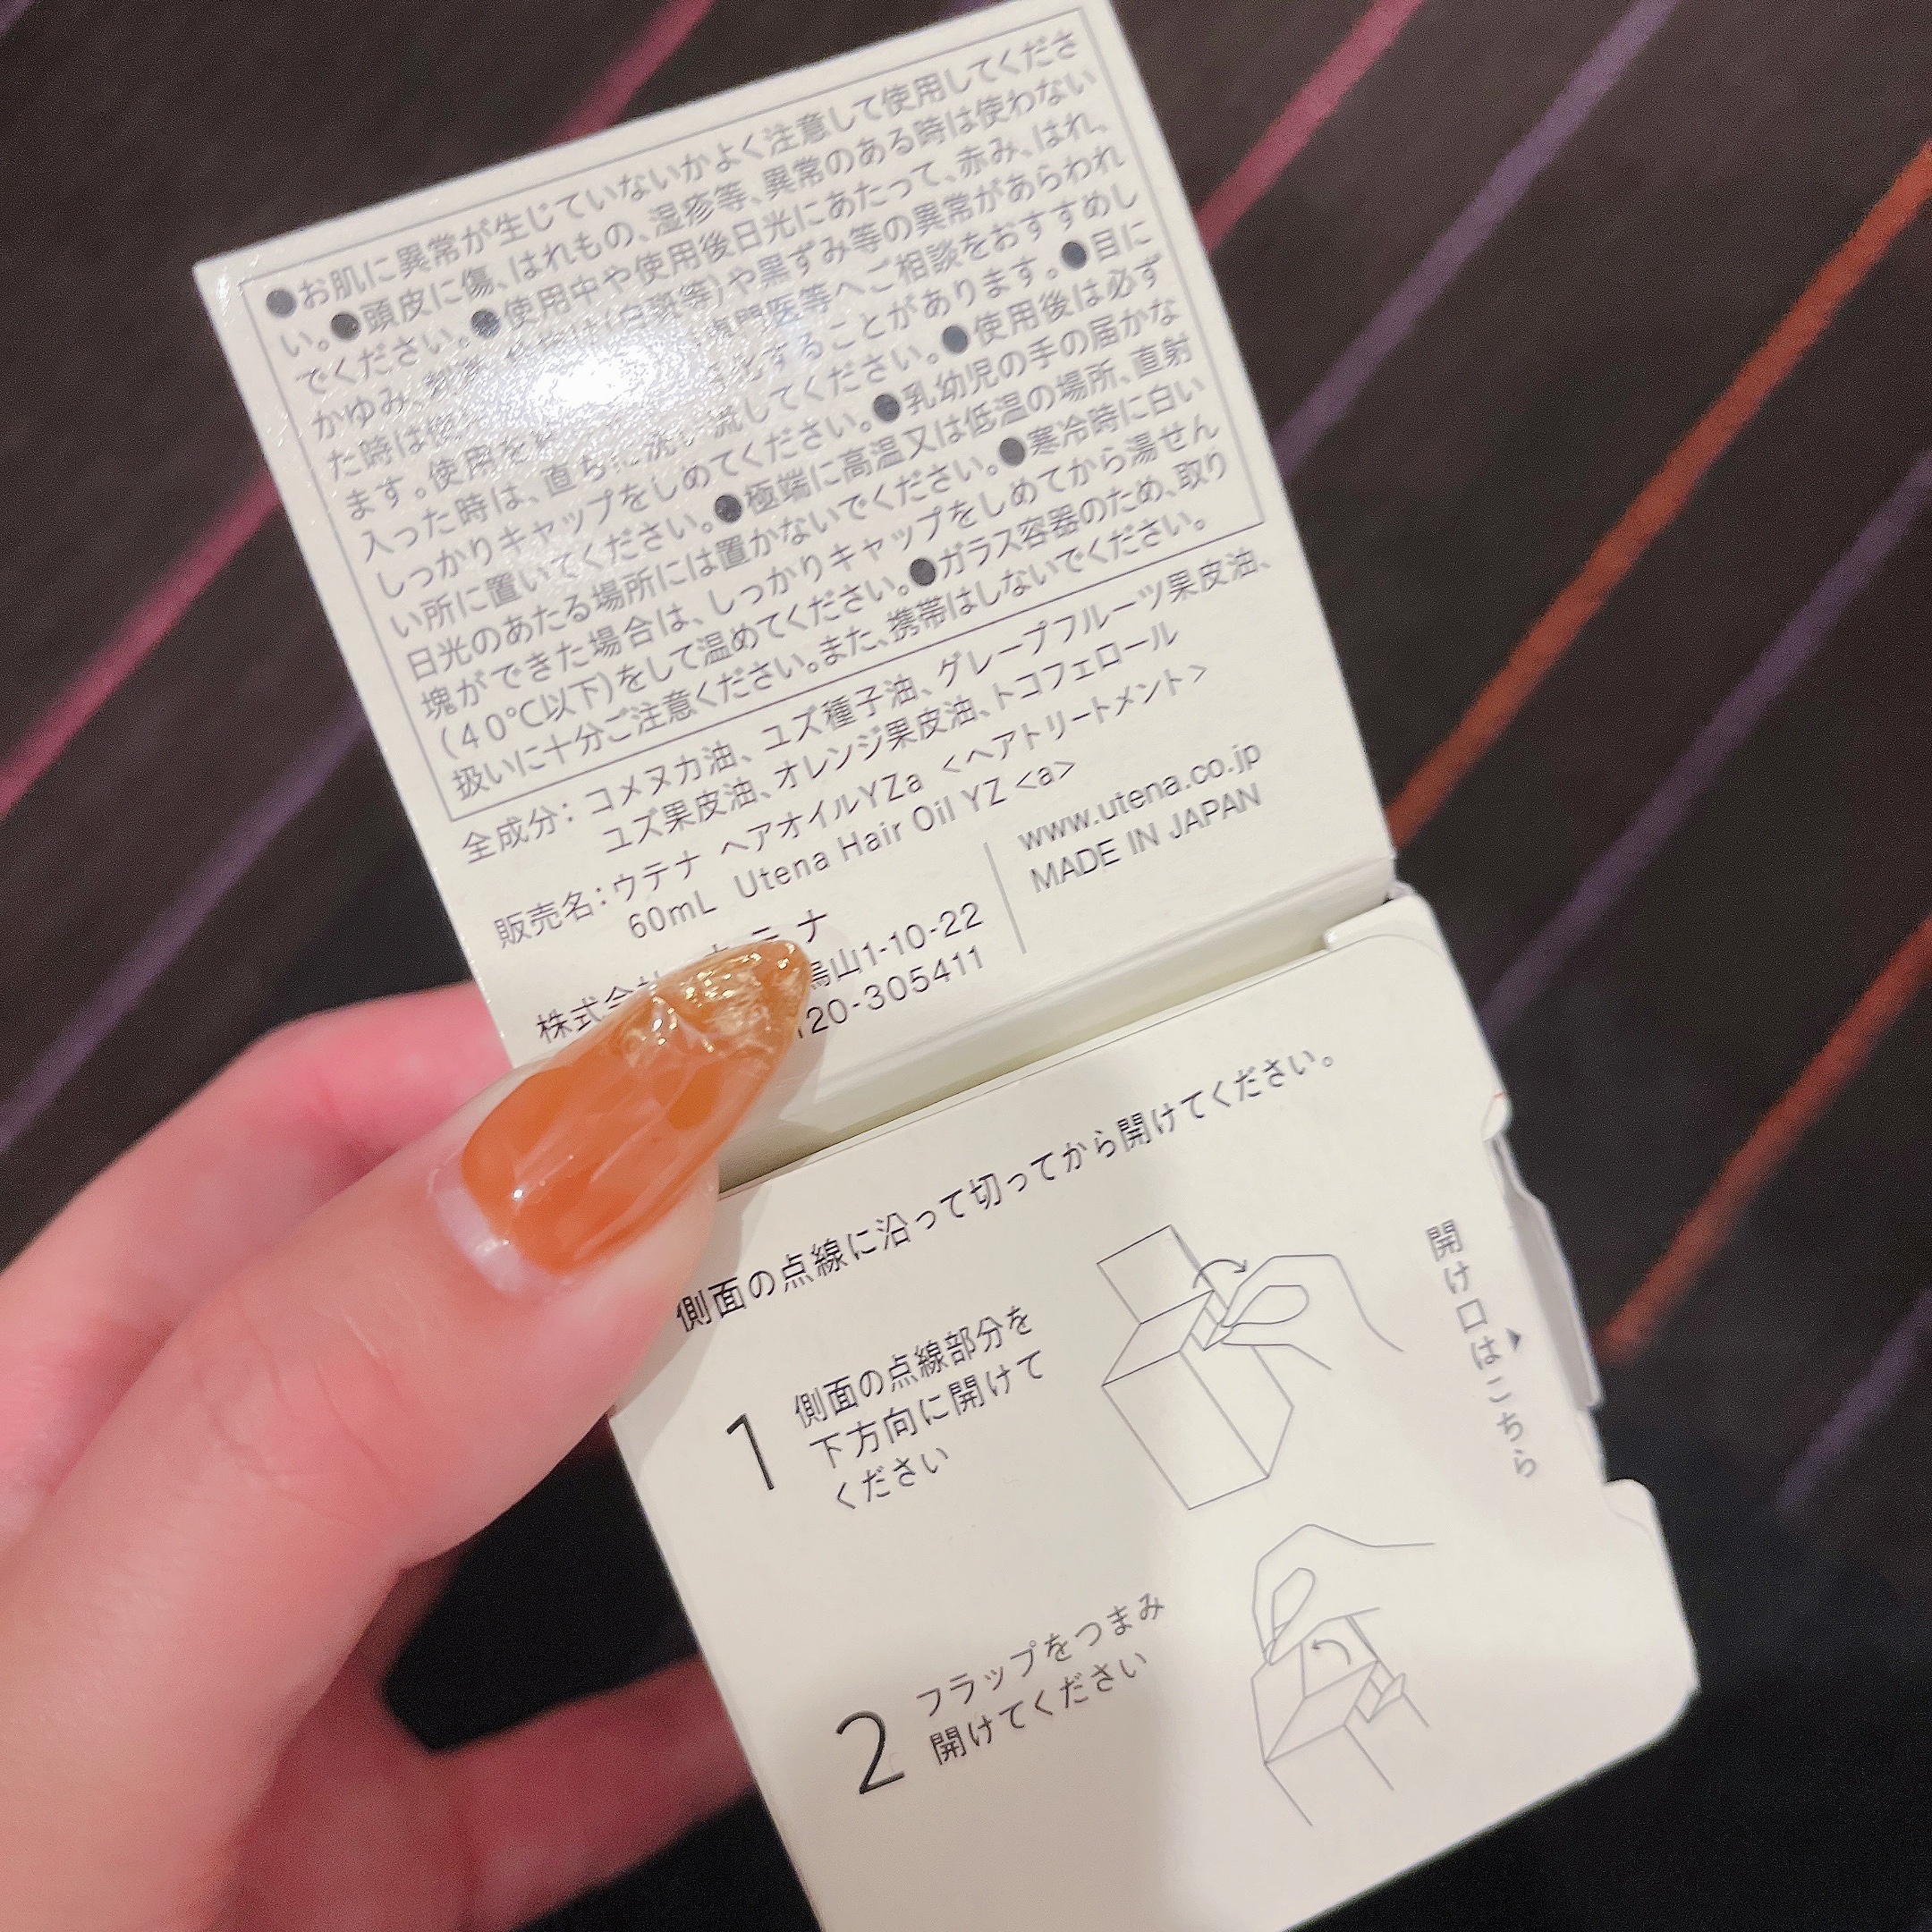 ●お肌に異常が生じていないかよく注意して使用してくださ
い。●頭皮に傷、はれもの、湿疹等、異常のある時は使わない
でください。●使用中や使用後日光にあたって、赤み、はれ、
かゆみ、(白斑等)や黒ずみ等の異常があらわれ
た時は使 専門医等へご相談をおすすめし
ます。使用を とすることがあります。●目に
入った時は、直ちに洗い流してください。●使用後は必ず
しっかりキャップをしめてください。●乳幼児の手の届かな
い所に置いてください。●極端に高温又は低温の場所、直射
日光のあたる場所には置かないでください。●寒冷時に白い
塊ができた場合は、しっかりキャップをしめてから湯せん
(40℃以下)をして温めてください。●ガラス容器のため、取り
扱いに十分ご注意ください。また、携帯はしないでください。
全成分：コメヌカ油、ユズ種子油、グレープフルーツ果皮油、
ユズ果皮油、オレンジ果皮油、トコフェロール
販売名：ウテナ ヘアオイルYZa <ヘアトリートメント>
60mL Utena Hair Oil YZ <a>
株式会社 ウテナ
烏山1-10-22
120-305411
www.utena.co.jp
MADE IN JAPAN
側面の点線に沿って切ってから開けてください。
1 側面の点線部分を
下方向に開けて
ください
開け口はこちら
2 フラップをつまみ
開けてください